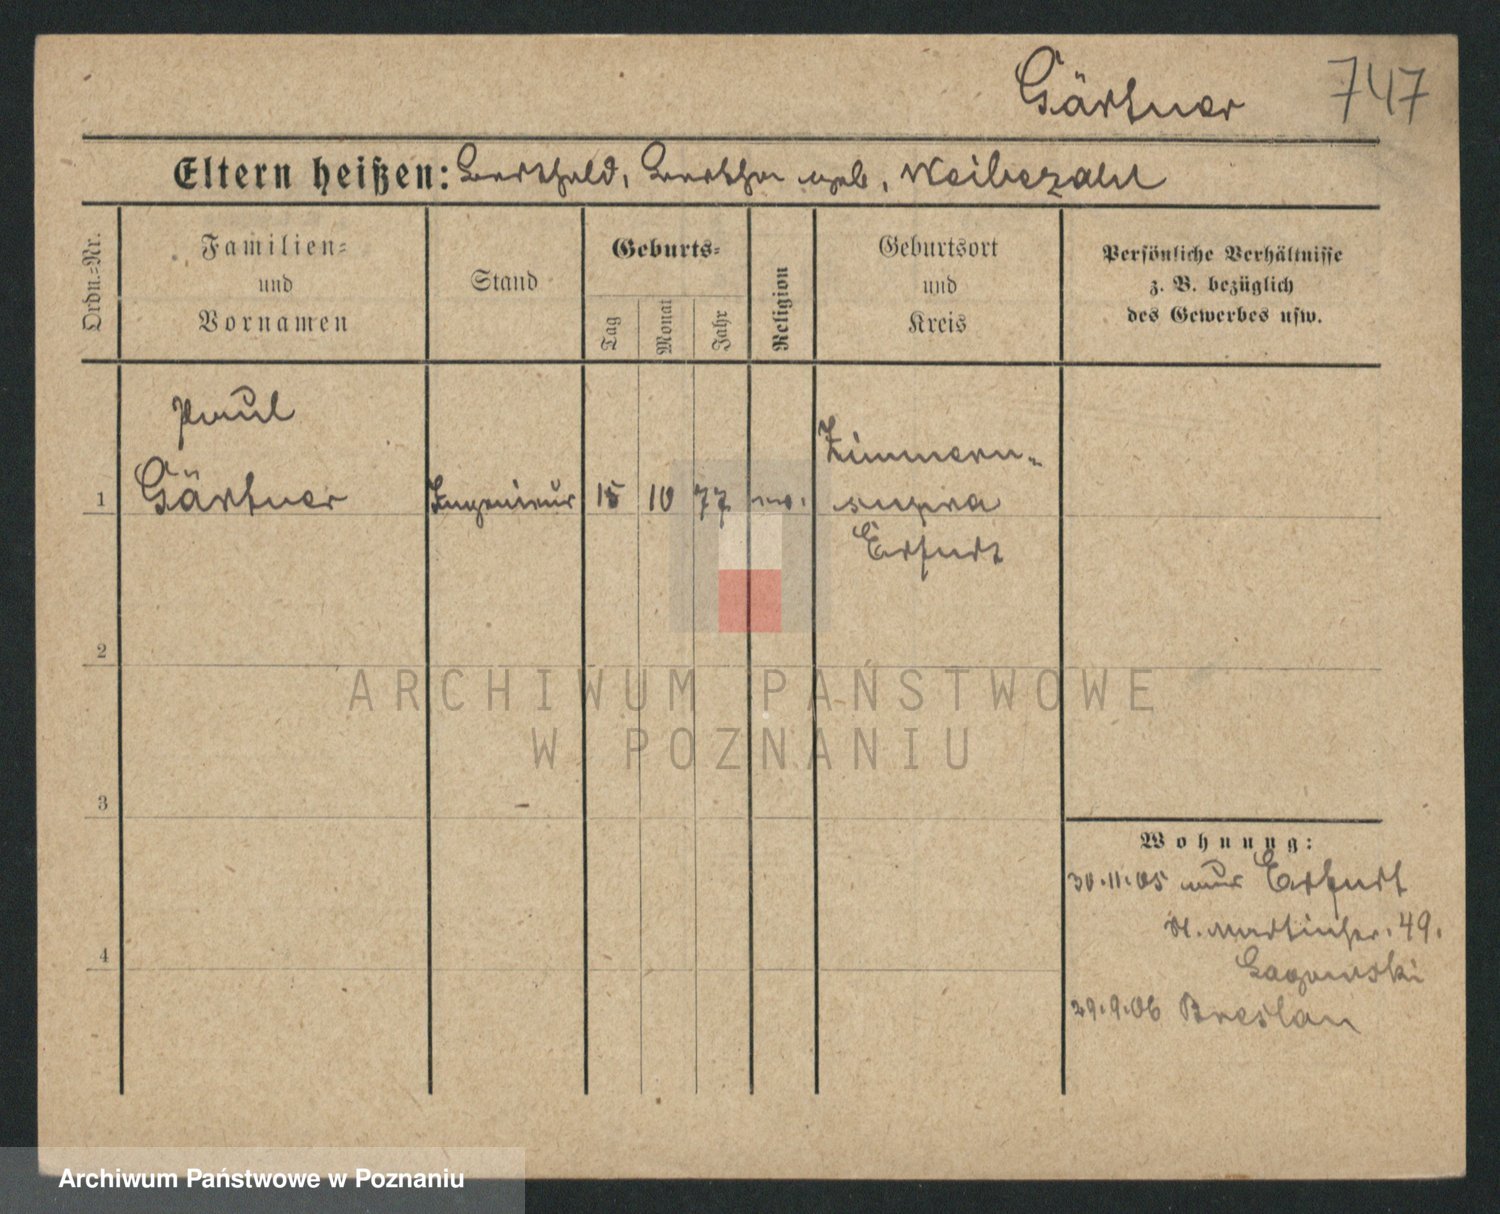 Gärtner 747
Eltern heißen: Berthold, Bertha geb. Weibezahl
Ordn.=Nr.
Familien=
und
Vornamen
Stand
Geburts=
Tag
Monat
Jahr
Religion
Geburtsort
und
Kreis
Persönliche Verhältnisse
z. B. bezüglich
des Gewerbes usw.
Paul
1 Gärtner Ingenieur 15 10 77 ev. Zimmern-
supra
Erfurt
2
3
4
Wohnung:
30.11.05 Erfurt
St. Martinstr. 49.
29.9.06 Breslau
ARCHIWUM PAŃSTWOWE
W POZNANIU
Archiwum Państwowe w Poznaniu